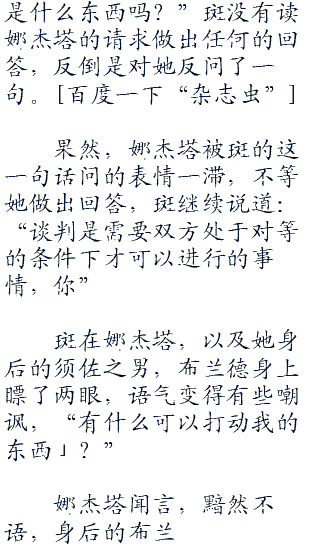 是什么东西吗？”斑没有读
娜杰塔的请求做出任何的回
答，反倒是对她反问了一
句。[百度一下“杂志虫”]
果然，娜杰塔被斑的这
一句话问的表情一滞，不等
她做出回答，斑继续说道：
“谈判是需要双方处于对等
的条件下才可以进行的事
情，你”
斑在娜杰塔，以及她身
后的须佐之男，布兰德身上
瞟了两眼，语气变得有些嘲
讽，“有什么可以打动我的
东西」？”
娜杰塔闻言，黯然不
语，身后的布兰